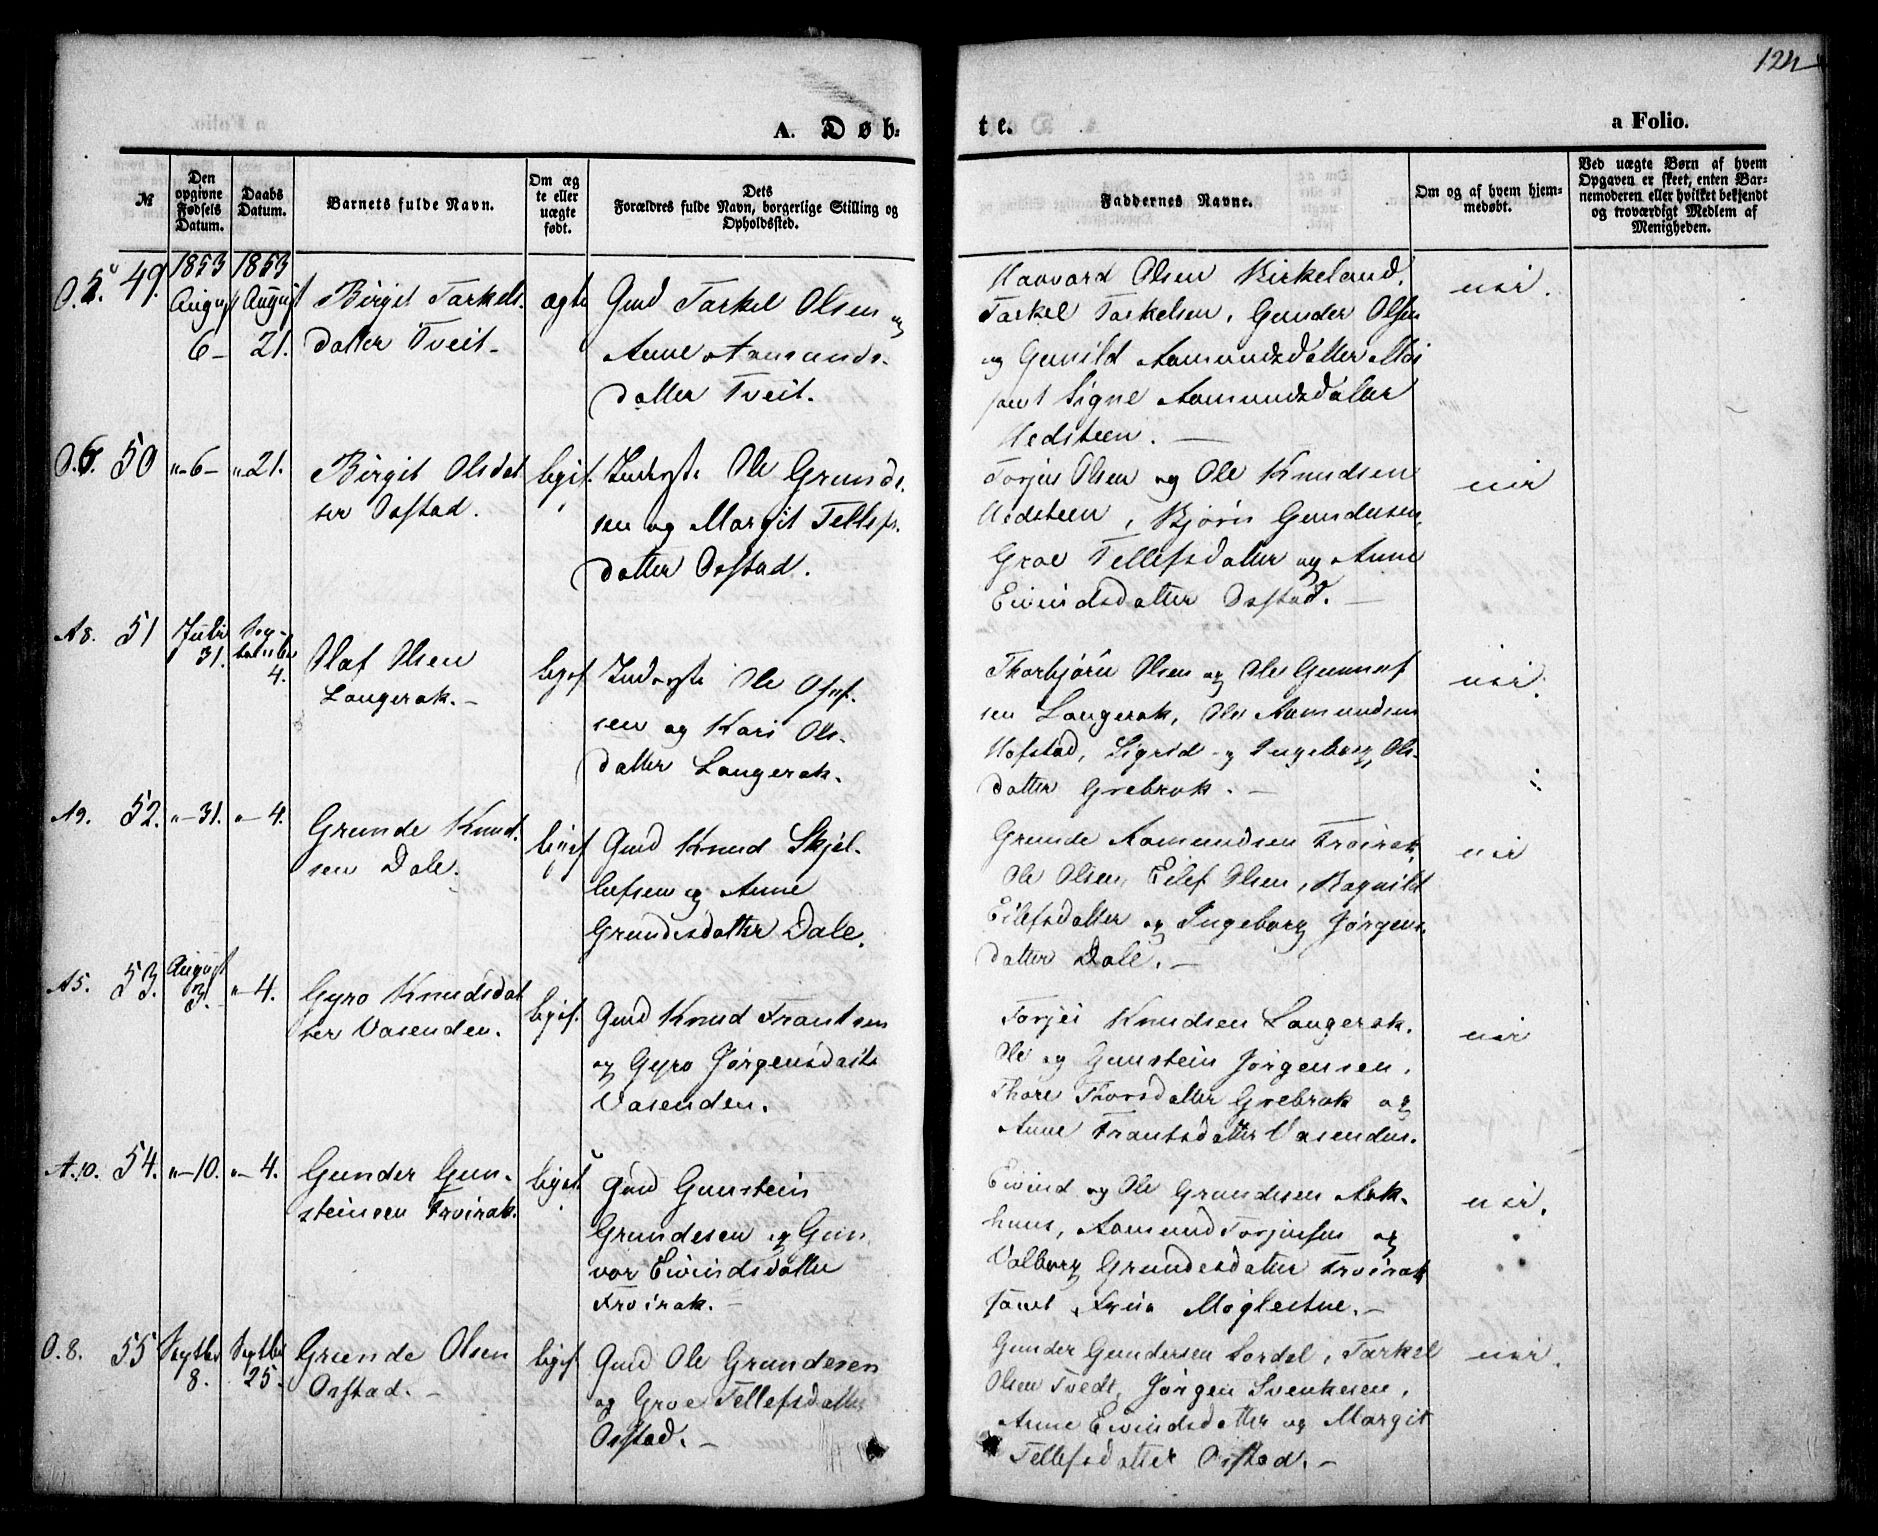 124
A. Døb-
te.
a Folio.
№
Den opgivne Fødsels Datum.
Daabs Datum.
Barnets fulde Navn.
Om ægte eller uægte født.
Dets Forældres fulde Navn, borgerlige Stilling og Opholdssted.
Faddernes Navne.
Om og af hvem hjemmedøbt.
Ved uægte Børn af hvem Opgaven er skeet, enten Barnemoderen eller hvilket bekjendt og troværdigt Medlem af Menigheden.
1853 1853
O. 5. 49. August 6 – August 21.
Birgit Tarkels-
datter Tveit –
ægte
Gmd Tarkel Olsen og
Anne Aamunds-
datter Tveit.
Haavard Olsen Birkeland,
Tarkel Tarkelsen, Gunder Olsen
og Gunild Aamundsdatter Moi
samt Signe Aamundsdatter
Hedsteen. –
nei.
O. 6. 50 " – 6 – " 21.
Birgit Olsdat
ter Osstad.
legit.
Inderste Ole Grunde-
sen og Margit Tellefs-
datter Osstad.
Torjus Olsen og Ole Knudsen
Hedsteen, Bjørn Gundersen,
Groe Tellefsdatter og Anne
Eivindsdatter Osstad. –
nei
A 8. 51 Juli 31. September 4.
Olaf Olsen
Langerak. –
legit.
Inderste Ole
sen og Kari Ols-
datter Langerak.
Thorbjørn Olsen og Ole Gunnuf
sen Langerak, Ole Aamundsen
Hofstad, Sigrid og Ingeborg Ols-
datter Grebrok. –
nei.
A 9. 52. " – 31. " – 4.
Grunde Knud-
sen Dale.
legit.
Gmd Knud Skjel-
lefsen og Anne
Grundesdatter Dale.
Grunde Aamundsen Frøirak,
Ole Olsen, Eilef Olsen, Ragnild
Eilefsdatter og Ingeborg Jørgens-
datter Dale. –
nei
A 5. 53. August 31. " – 4.
Gyro Knudsdat
ter Vasenden.
legit.
Gmd Knud Frantsen
og Gyro Jørgensdatter
Vasenden.
Torjei Knudsen Langerak.
Ole og Gunstein Jørgensen,
Thore Thorsdatter Grebrok og
Anne Frantsdatter Vasenden.
nei
A. 10. 54. " – 10. " – 4.
Gunder Gun-
steinsen Frøirak.
legit.
Gmd Gunstein
Grundesen og Gun
vor Eivindsdatter
Frøirak. –
Eivind og Ole Grundesen Aak-
huus, Aamund Torjussen og
Valborg Grundesdatter Frøirak
samt Møglestue. –
nei.
O. 8. 55 Septbr 8. Septbr 25.
Grunde Olsen
Osstad. –
legit.
Gmd Ole Grundesen
og Groe Tellefsdatter
Osstad. –
Gunder Gundersen Lordal, Tarkel
Olsen Tvedt, Jørgen Svenkesen,
Anne Eivindsdatter og Margit
Tellefsdatter Osstad. –
nei.